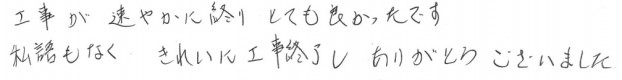 工事が 速やかに終り とても良かったです
私語もなく きれいに工事終了し ありがとうございました